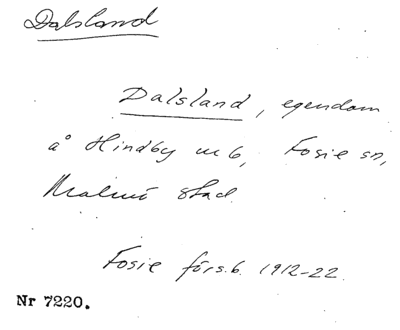 Dalsland
Dalsland, egendom
å Hindby n:6, Fosie sn,
Malmö stad.
Fosie förs.b. 1912-22.
Nr 7220.